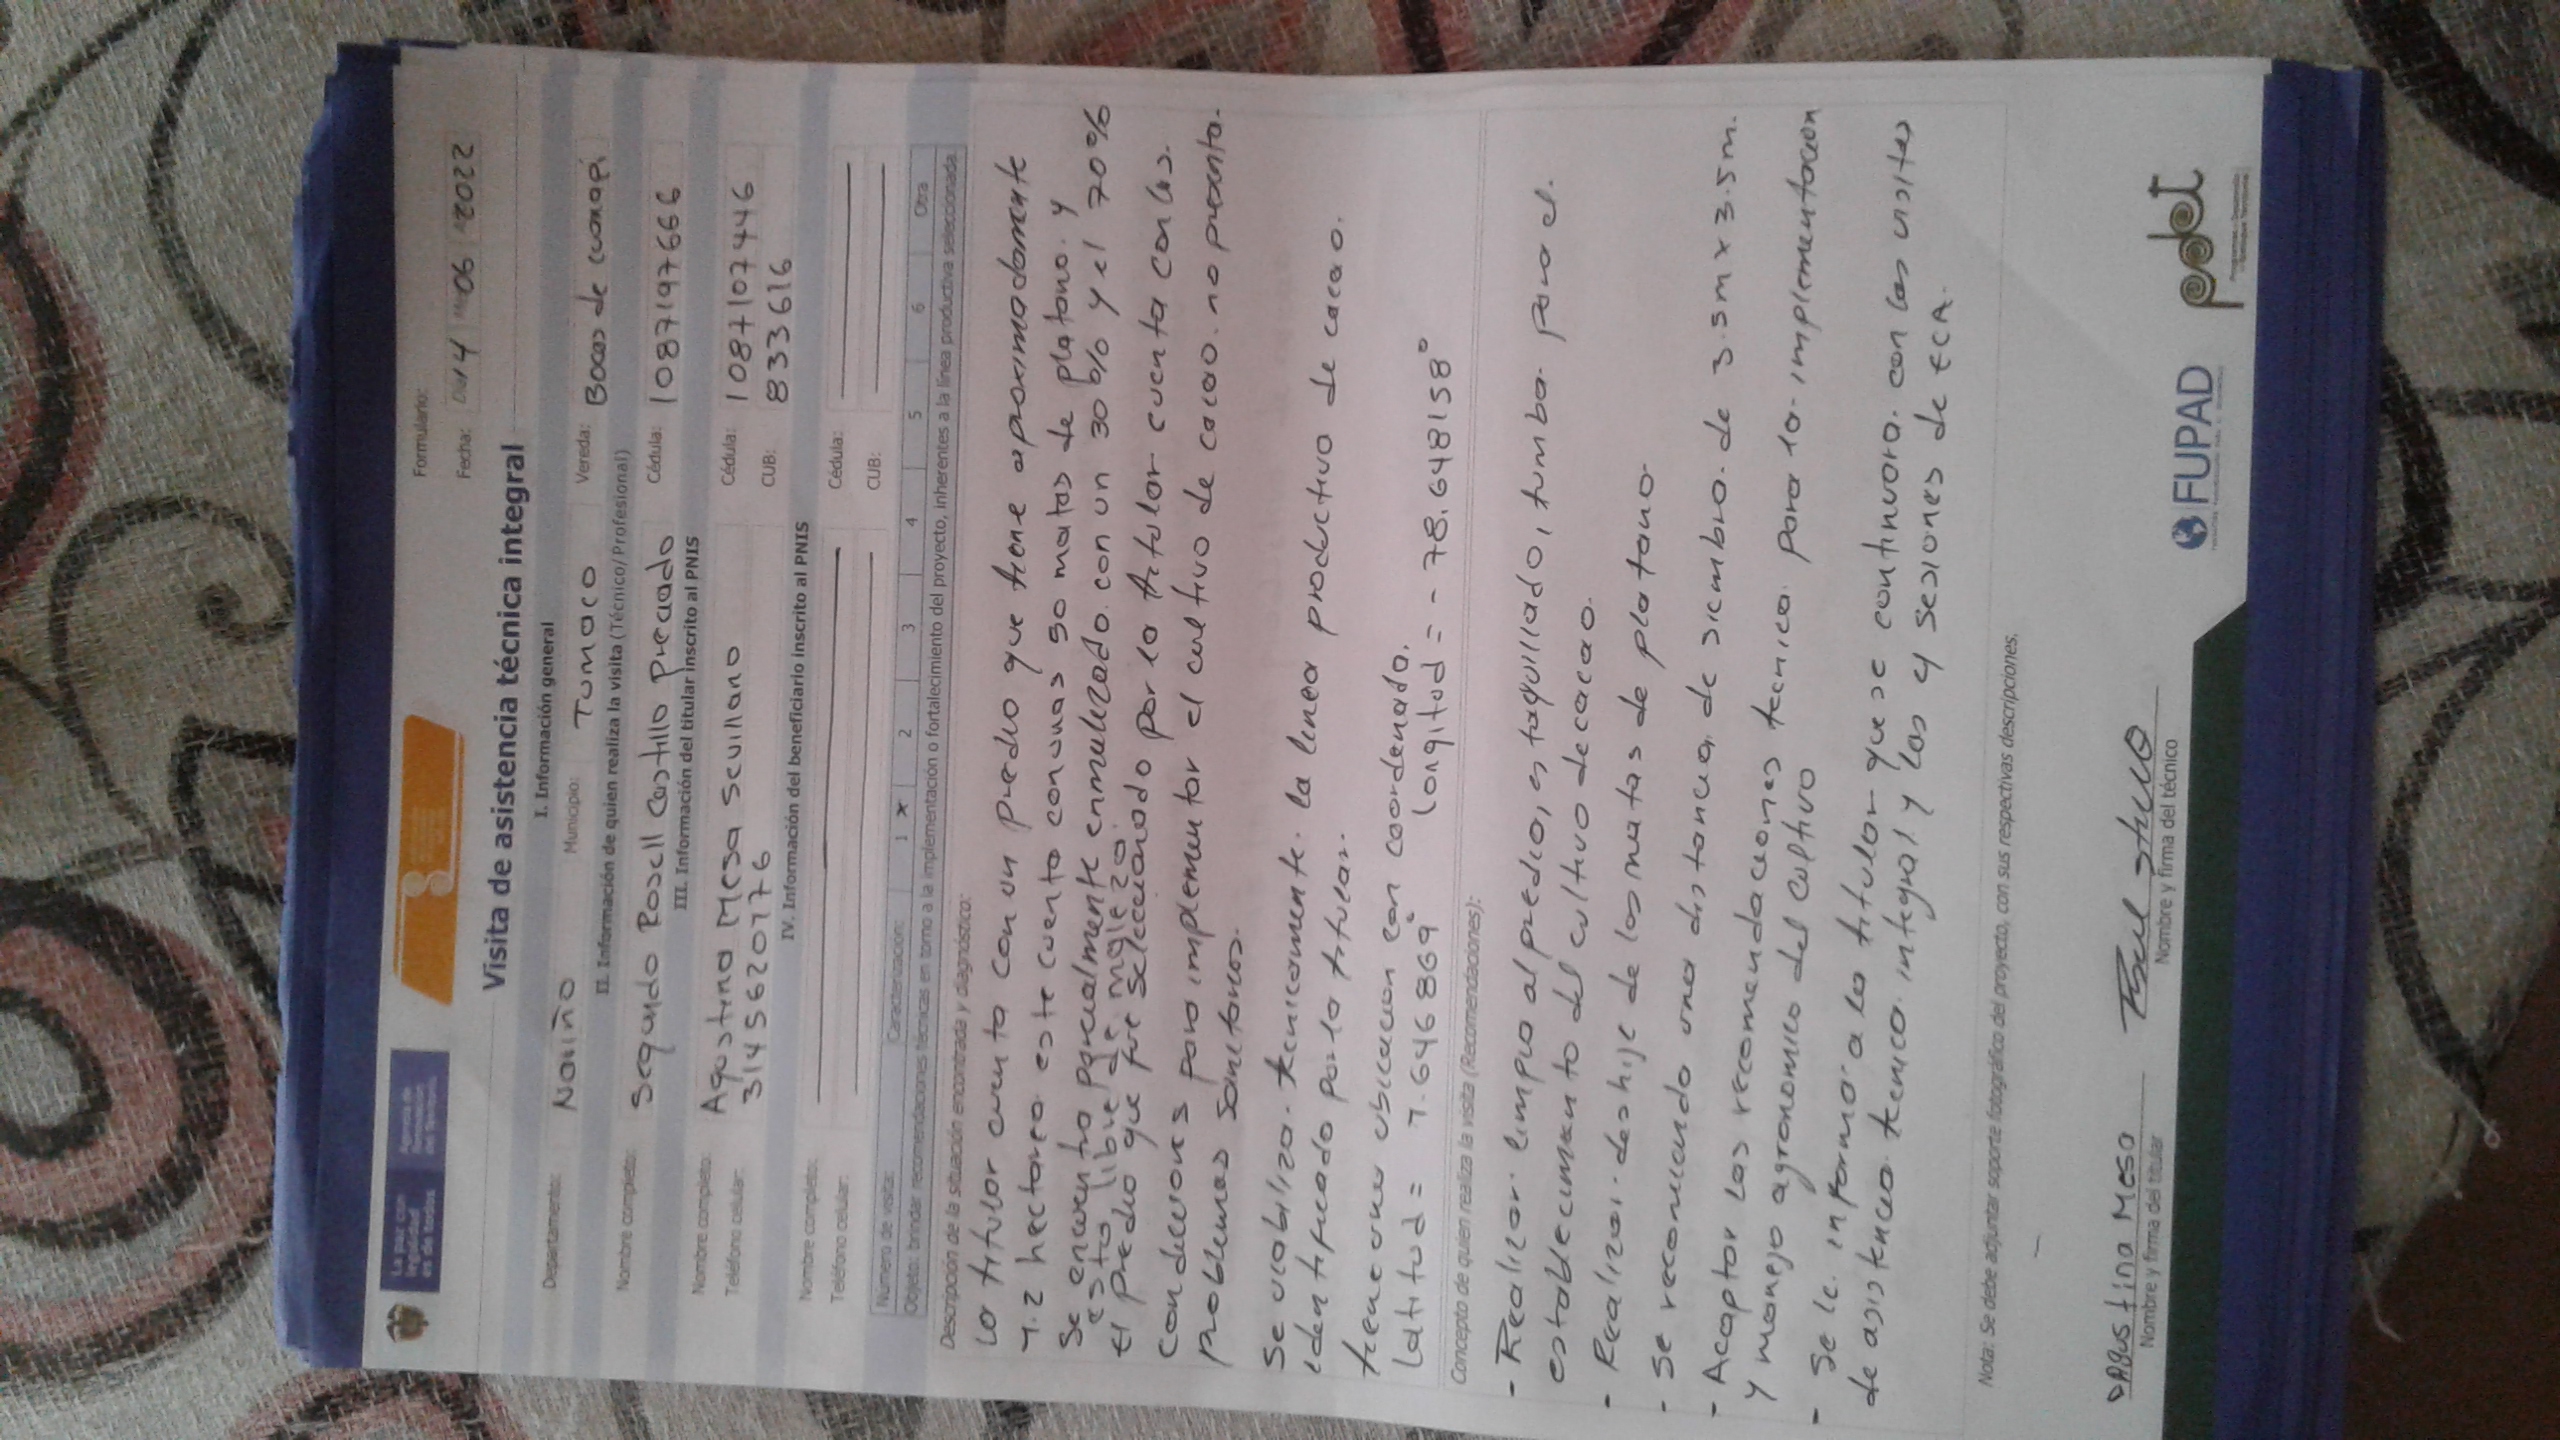 La paz con
legalidad
es de todos
Agencia de
Renovación
del Territorio
Formulario:
Fecha: 14 06 2022
Visita de asistencia técnica integral
I. Información general
Departamento: Nariño Municipio: Tumaco Vereda: Bocas de cuarapi
II. Información de quien realiza la visita (Técnico/Profesional)
Nombre completo: Segundo Rosell Castillo Preciado Cédula: 1087197666
III. Información del titular inscrito al PNIS
Nombre completo: Agustina Mesa Sevillano Cédula: 1087107446
Teléfono celular: 3145620176 CUB: 833616
IV. Información del beneficiario inscrito al PNIS
Nombre completo: Cédula:
Teléfono celular: CUB:
Número de visita: Caracterización: 1 x 2 3 4 5 6 Otra
Objeto: brindar recomendaciones técnicas en torno a la implementación o fortalecimiento del proyecto, inherentes a la línea productiva seleccionada
Descripción de la situación encontrada y diagnóstico:
La titular cuenta con un predio que tiene aproximadamente
1.2 hectarea este cuenta con unas 50 matas de platano. y
se encuentra parcialmente enmalezado. con un 30 % y el 70%
esta libre de maleza.
El predio que fue seleccionado por la titular cuenta con las.
condiciones para implementar el cultivo de cacao. no presenta.
problemas sanitarios.
Se viabiliza. tecnicamente. la linea productiva de cacao.
identificado por la titular.
tiene una ubicacion con coordenada.
latitud = 1.646869° longitud = - 78.648158°
Concepto de quien realiza la visita (Recomendaciones):
- Realizar. limpia al predio, estaquillado, tumba. para el.
establecimiento del cultivo de cacao.
- Realizar. deshije de las matas de platano
- Se recomienda una distancia. de siembra. de 3.5m x 3.5m.
- Acaptar las recomendaciones tecnica. para la. implementacion
y manejo agronomico del cultivo
- Se le. informa. a la titular que se continuara. con las visitas
de asistencia. tecnica. integral y las 4 sesiones de ECA.
Nota: Se debe adjuntar soporte fotográfico del proyecto, con sus respectivas descripciones.
Agustina Mesa
Nombre y firma del titular Nombre y firma del técnico
FUPAD pdet